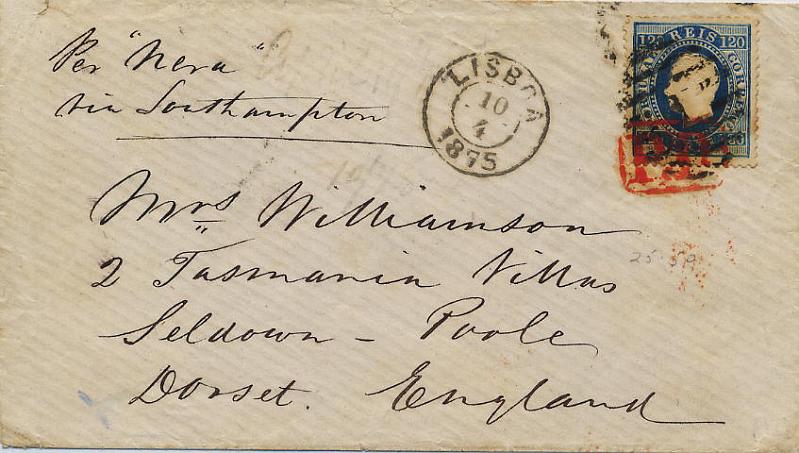 Per "Neva"
via Southampton
LISBOA
10
4
1875
120 REIS 120
CORREIO
Mrs Williamson
2 Tasmania Villas
Seldown - Poole
Dorset. England
25 59